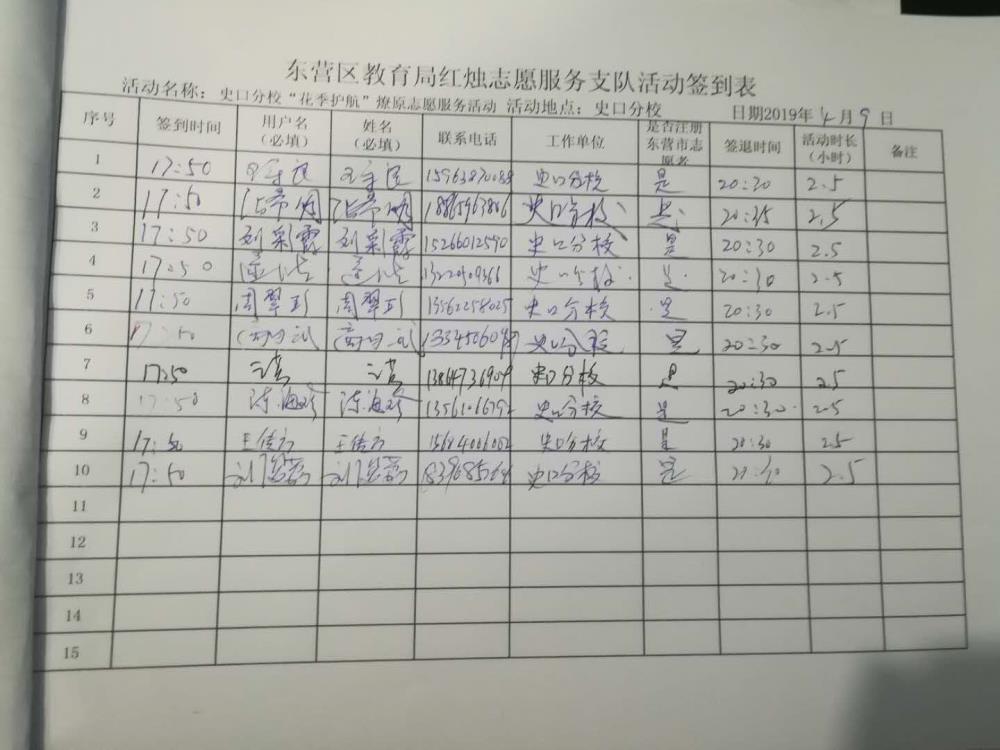 东营区教育局红烛志愿服务支队活动签到表
活动名称：史口分校“花季护航”燎原志愿服务活动 活动地点：史口分校 日期2019年4月9日
序号 签到时间 用户名（必填） 姓名（必填） 联系电话 工作单位 是否注册东营市志愿者 签退时间 活动时长（小时） 备注
1 17:50 15963870088 史口分校 是 20:30 2.5
2 17:50 史口分校 是 20:35 2.5
3 17:50 刘彩霞 刘彩霞 15266012590 史口分校 是 20:30 2.5
4 17:50 史口分校 是 20:30 2.5
5 17:50 周翠珍 周翠珍 13562258025 史口分校 是 20:30 2.5
6 17:50 史口分校 是 20:30 2.5
7 17:50 史口分校 是 20:30 2.5
8 17:50 陈海珍 陈海珍 史口分校 是 20:30 2.5
9 17:50 史口分校 是 20:30 2.5
10 17:50 史口分校 是 20:30 2.5
11
12
13
14
15